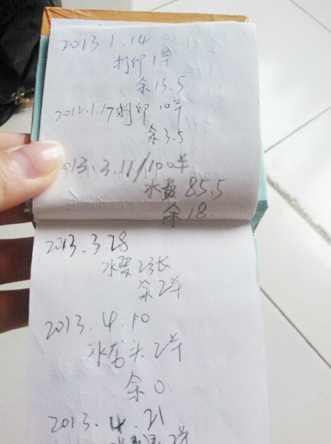 2013.1.14
打印1羊
余13.5
2012.1.17打印10羊
余3.5
013.3.11/100羊
水费85.5
余18
2013.3.28
余2羊
2013.4.10
水龙头2羊
余0
2013.4.21